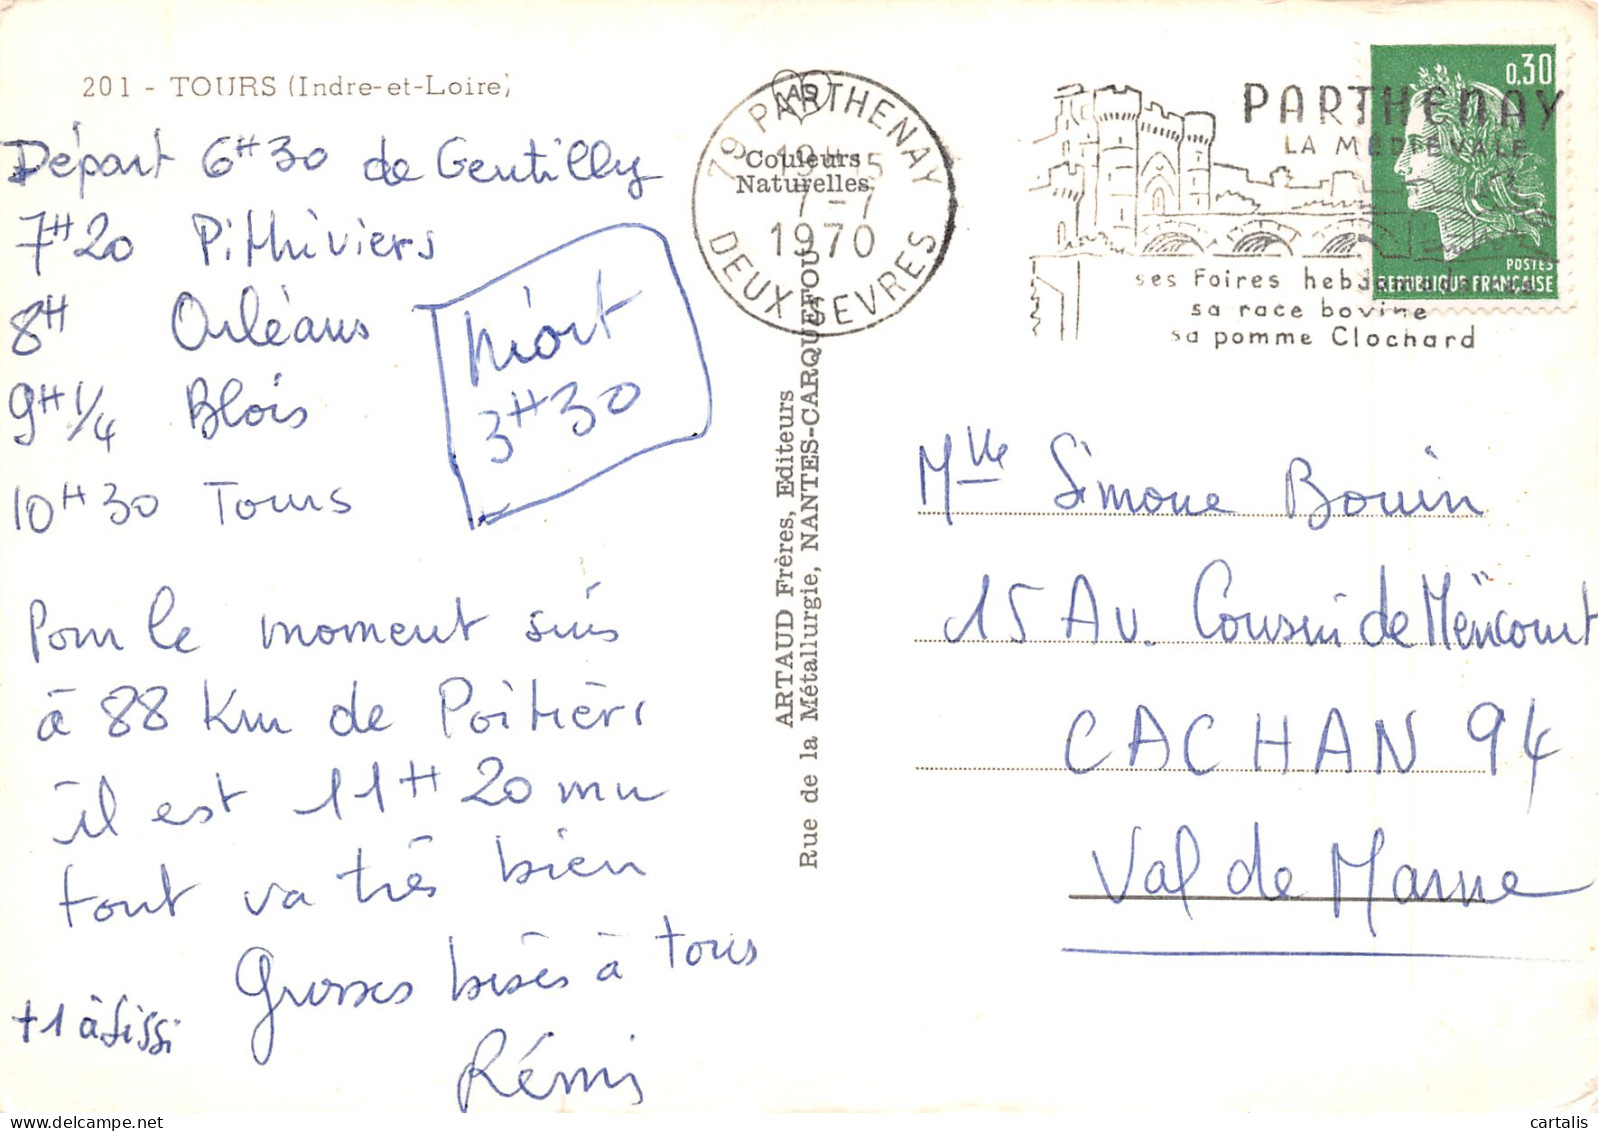 201 - TOURS (Indre-et-Loire)
Départ 6H30 de Gentilly
7H20 Pithiviers
8H Orléans
9H 1/4 Blois
10H30 Tours
Niort
3H30
Pour le moment suis
à 88 Km de Poitiers
il est 11H20 mn
tout va très bien
Grosses bises à tous
+1 à Sissi
Rémi
AS
Couleurs
Naturelles
79 PARTHENAY
19H15
7-7
1970
DEUX SEVRES
ARTAUD Frères, Editeurs
Rue de la Métallurgie, NANTES-CARQUEFOU
PARTHENAY
LA MÉDIÉVALE
ses Foires hebdomadaires
sa race bovine
sa pomme Clochard
0,30
POSTES
REPUBLIQUE FRANÇAISE
Mlle Simone Bouin
15 Av. Cousin de Méricourt
CACHAN 94
Val de Marne
cartalis